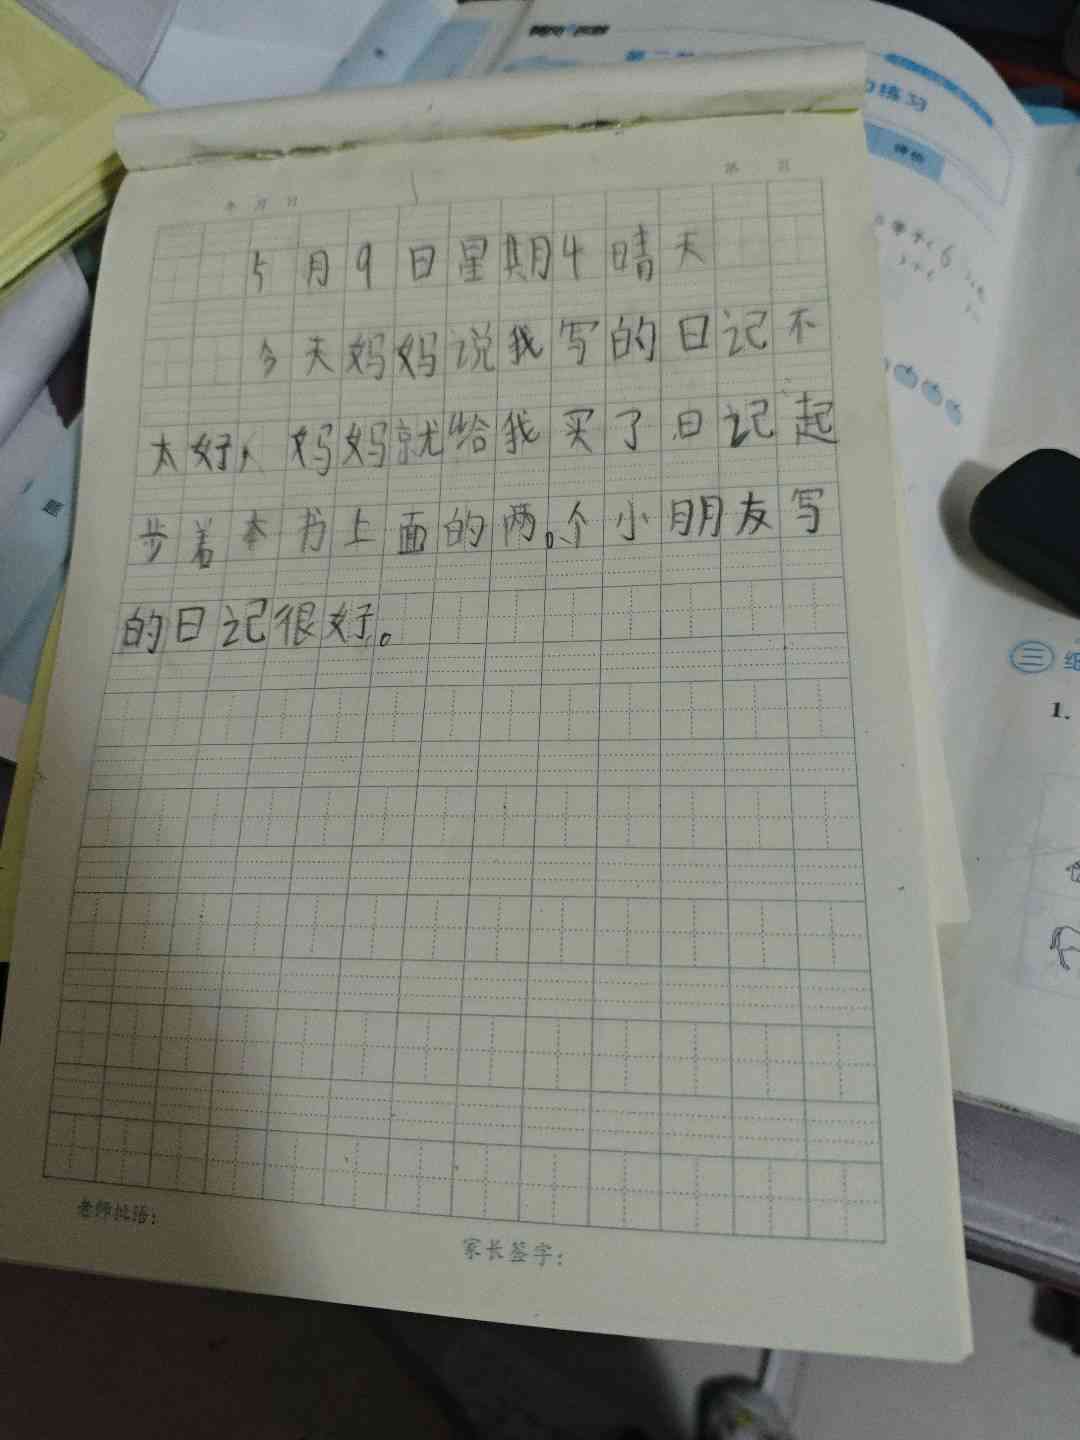 练习
评价
年 月 日
第 页
5月9日星期4晴天
今天妈妈说我写的日记不
太好,妈妈就给我买了日记起
步着本书上面的两。个小朋友写
的日记很好。
老师批语:
家长签字:
三
1.